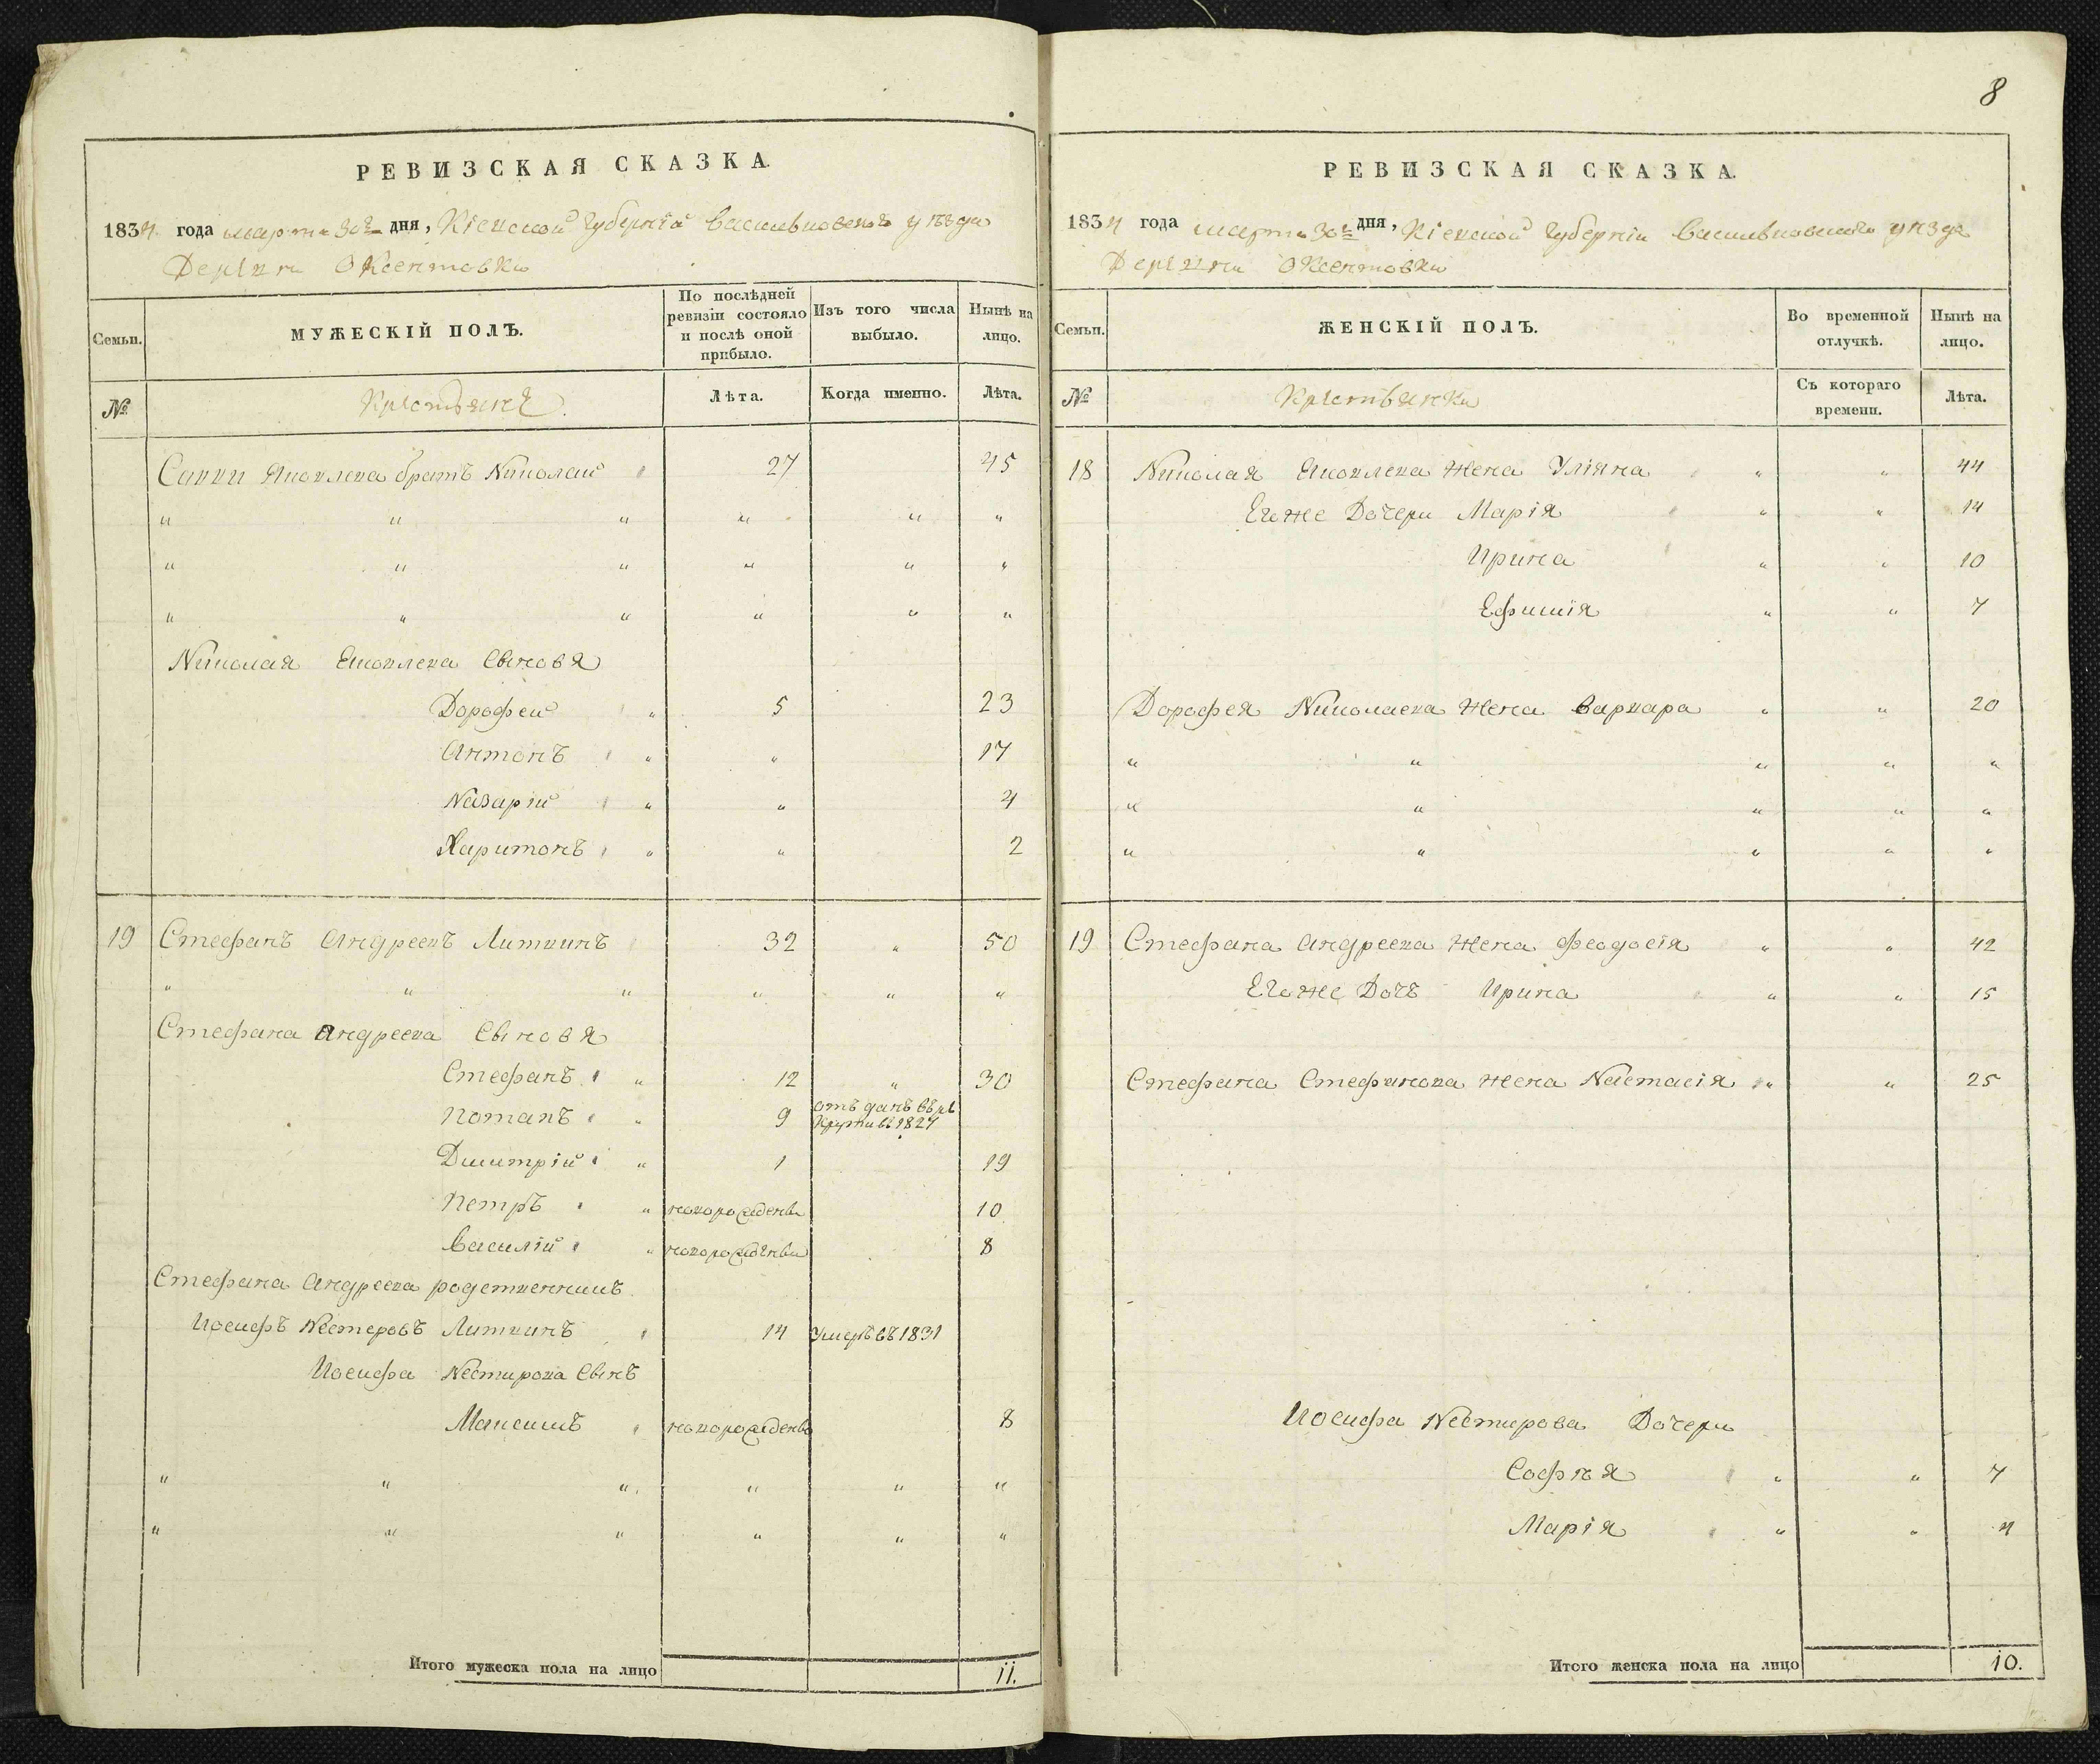 РЕВИЗСКАЯ СКАЗКА.
1834 года марта 30го дня, Кіевской губерніи Васильковскаго уѣзда
Деревни Оксентовки
Семьи.
МУЖЕСКІЙ ПОЛЪ.
По послѣдней ревизіи состояло и послѣ оной прибыло.
Изъ того числа выбыло.
Нынѣ на лицо.
№
Крестьяне
Лѣта.
Когда именно.
Лѣта.
Савви Яковлева братъ Николай " 27 45
" " " " " "
" " " " " "
" " " " " "
Николая Яковлева Сыновя
Дорофей " 5 23
Антонъ " " 17
Назарій " " 4
Харитонъ " " 2
19 Стефанъ Андреевъ Литвинъ 32 " 50
" " " " " "
Стефана Андреева Сыновя
Стефанъ " 12 " 30
Потапъ " 9 отъданъ въ ре
круты въ 1827
Дмитрій " 1 19
Петръ " новорожденъ 10
Василій " новорожденъ 8
Стефана Андреева родственникъ
Иосифъ Нестеровъ Литвинъ 14 Умеръ въ 1831
Иосифа Нестирова Сынъ
Максимъ новорожденъ 8
" " " " " "
" " " " " "
Итого мужеска пола на лицо 11.
8
РЕВИЗСКАЯ СКАЗКА.
1834 года марта 30го дня, Кіевской губерніи Васильковскаго уѣзда
Деревни Оксентовки
Семьи.
ЖЕНСКІЙ ПОЛЪ.
Во временной отлучкѣ.
Нынѣ на лицо.
№
Крестьянки
Съ котораго времени.
Лѣта.
18 Николая Яковлева жена Уліяна " " 44
Егоже Дочери Марія " " 14
Ирина " " 10
Ефимія " " 7
Дорофея Николаева жена Варвара " " 20
" " " " "
" " " " "
" " " " "
19 Стефана Андреева жена Феодосія " " 42
Егоже Дочъ Ирина " " 15
Стефана Стефанова жена Настасія " " 25
Иосифа Нестирова Дочери
Софія " " 7
Марія " " 4
Итого женска пола на лицо 10.